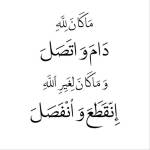 مَا كَانَ لِلّٰهِ
دَامَ وَ اتَّصَلَ
وَ مَا كَانَ لِغَيرِ اللّٰهِ
إِنْقَطَعَ وَ أنْفَصَلَ